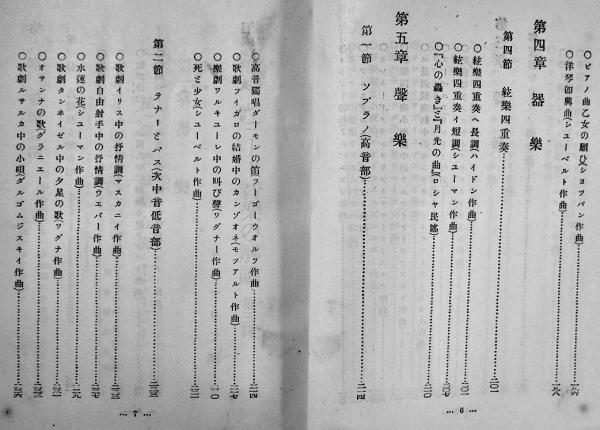 〇ピアノ曲乙女の願ひ(ショツパン作曲)
〇洋琴卽興曲(シューベルト作曲)
第四章 器樂
第四節 絃樂四重奏
〇絃樂四重奏ヘ長調(ハイドン作曲)
〇絃樂四重奏イ短調(シューマン作曲)
〇『心の轟き』と『月光の曲』(ロシヤ民謠)
第五章 聲樂
第一節 ソプラノ(高音部)
… 6 …
〇高音獨唱ダーモンの笛フーゴーウオルフ作曲
〇歌劇フイガロの結婚中のカンゾオネ(モツアルト作曲)
〇樂劇ワルキューレ中の叫び聲(ワグナー作曲)
〇死と少女(シューベルト作曲)
第二節 テナーとバス(次中音低音部)
〇歌劇イリス中の抒情調(マスカニイ作曲)
〇歌劇自由射手中の抒情調(ウエバー作曲)
〇水蓮の花(シューマン作曲)
〇歌劇タンネイゼル中の夕星の歌(ワグナ作曲)
〇オサンナの歌(グラニエール作曲)
〇歌劇ルサルカ中の小唄(ダルゴムジスキイ作曲)
… 7 …